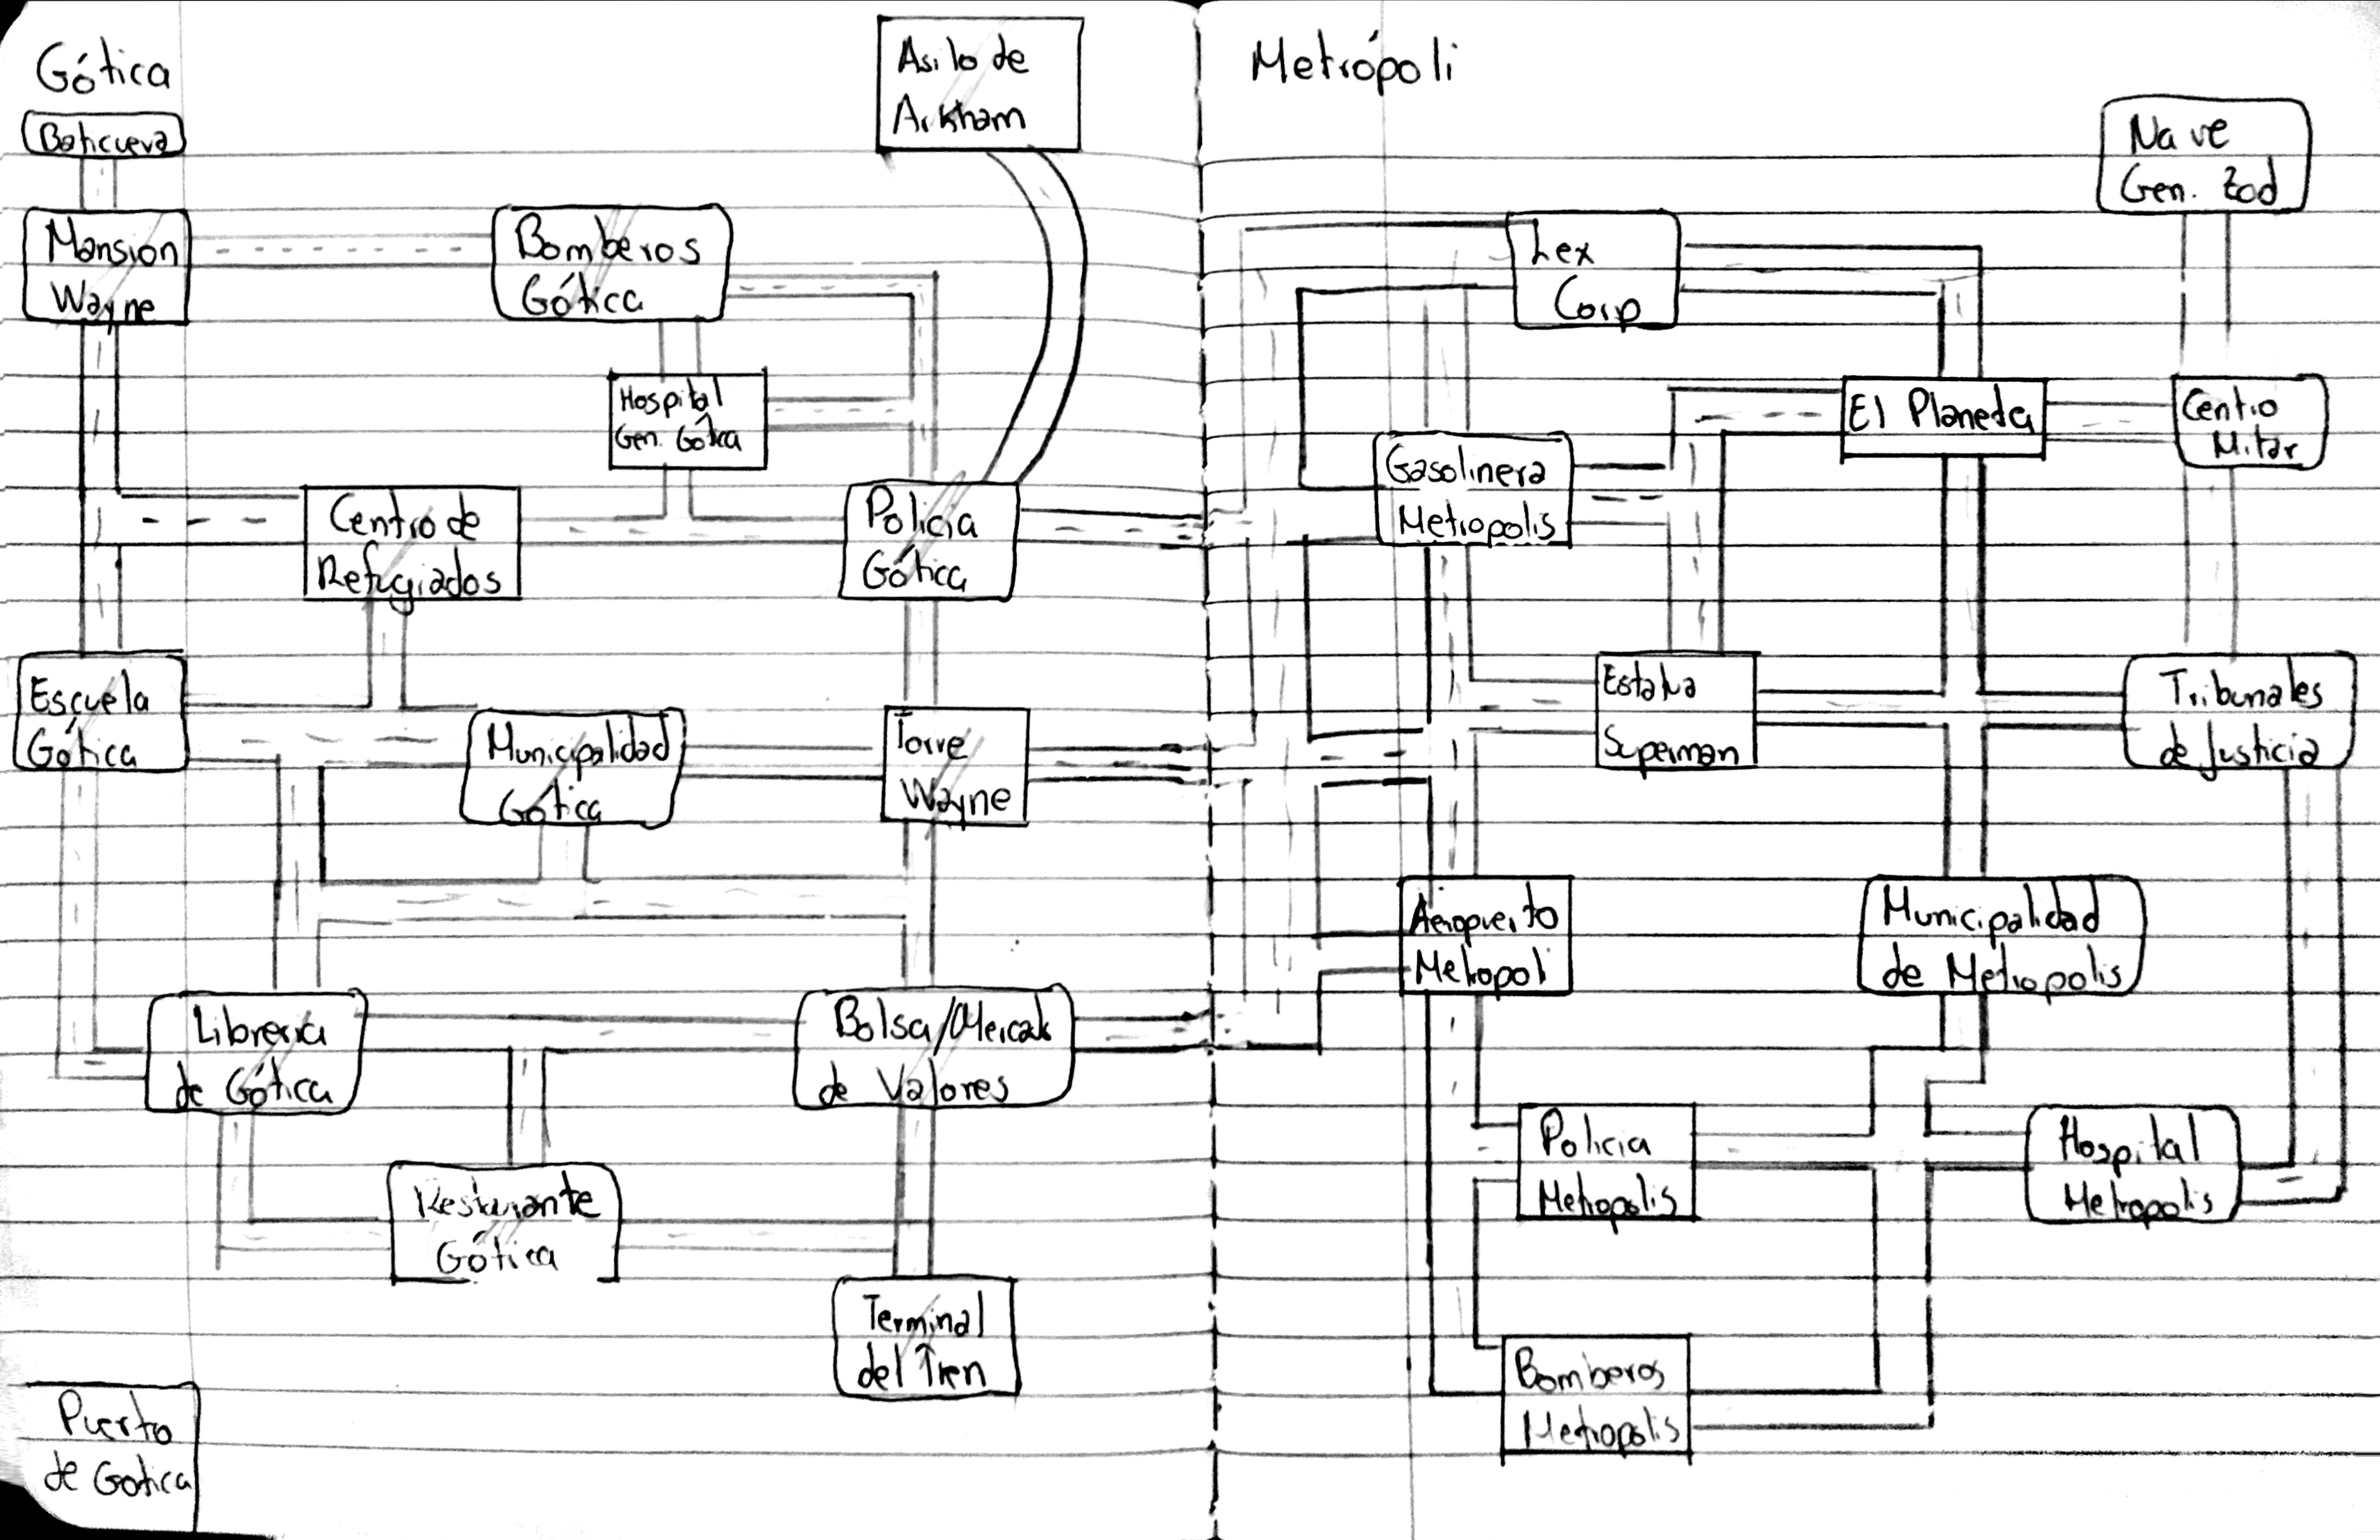 Gótica
Baticueva
Mansion
Wayne
Bomberos
Gótica
Asilo de
Arkham
Hospital
Gen. Gótica
Centro de
Refugiados
Policia
Gótica
Escuela
Gótica
Municipalidad
Gótica
Torre
Wayne
Libreria
de Gótica
Bolsa/Mercado
de Valores
Resturante
Gótica
Terminal
del Tren
Puerto
de Gotica
Metrópoli
Nave
Gen. Zod
Lex
Corp
El Planeta
Centro
Militar
Gasolinera
Metropolis
Estatua
Superman
Tribunales
de Justicia
Aeropuerto
Metropoli
Municipalidad
de Metropolis
Policia
Metropolis
Hospital
Metropolis
Bomberos
Metropolis